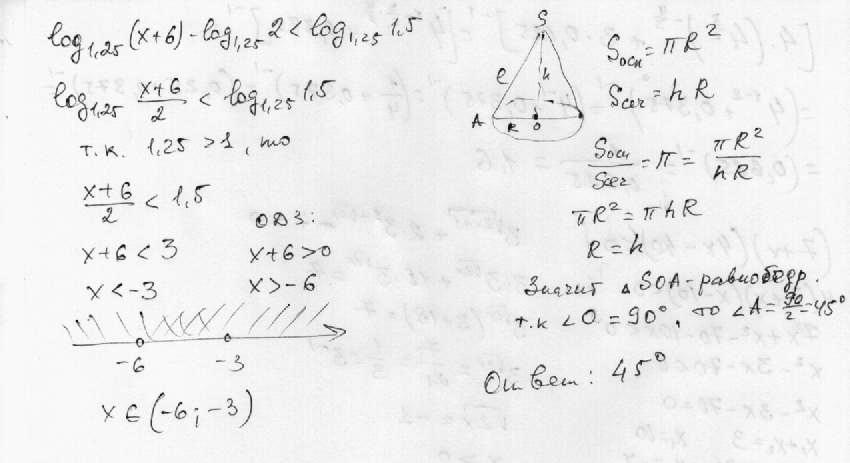 log₁,₂₅ (x+6) - log₁,₂₅ 2 < log₁,₂₅ 1,5
log₁,₂₅ (x+6)/2 < log₁,₂₅ 1,5
т.к. 1,25 > 1, то
(x+6)/2 < 1,5
ОДЗ:
x+6 < 3 x+6 > 0
x < -3 x > -6
-6 -3
x ∈ (-6; -3)
S
l h
A R O
Sосн = πR²
Sсеч = hR
Sосн/Sсеч = π = πR²/hR
πR² = πhR
R = h
Значит △SOA - равнобедр.
т.к ∠O = 90°, то ∠A = 90/2 = 45°
Ответ: 45°